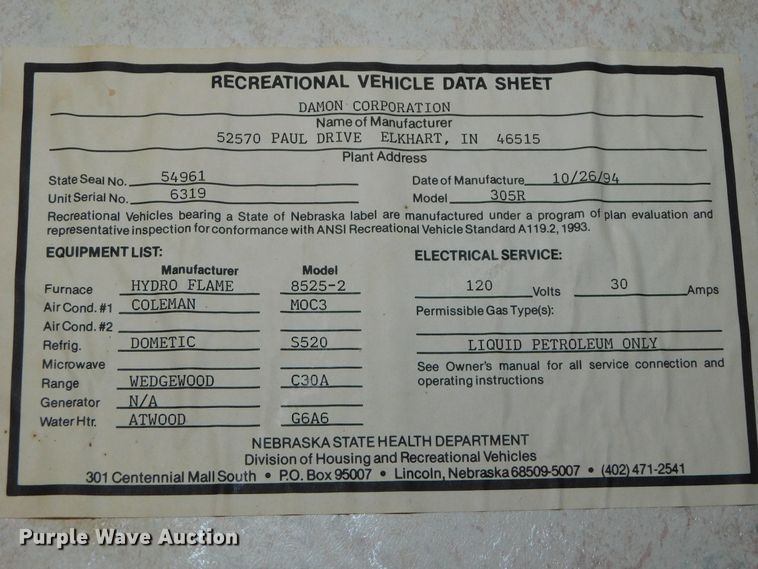 RECREATIONAL VEHICLE DATA SHEET
DAMON CORPORATION
Name of Manufacturer
52570 PAUL DRIVE ELKHART, IN 46515
Plant Address
State Seal No. 54961 Date of Manufacture 10/26/94
Unit Serial No. 6319 Model 305R
Recreational Vehicles bearing a State of Nebraska label are manufactured under a program of plan evaluation and
representative inspection for conformance with ANSI Recreational Vehicle Standard A119.2, 1993.
EQUIPMENT LIST: ELECTRICAL SERVICE:
Manufacturer Model
Furnace HYDRO FLAME 8525-2 120 Volts 30 Amps
Air Cond. #1 COLEMAN MOC3 Permissible Gas Type(s):
Air Cond. #2
Refrig. DOMETIC S520 LIQUID PETROLEUM ONLY
Microwave See Owner's manual for all service connection and
Range WEDGEWOOD C30A operating instructions
Generator N/A
Water Htr. ATWOOD G6A6
NEBRASKA STATE HEALTH DEPARTMENT
Division of Housing and Recreational Vehicles
301 Centennial Mall South • P.O. Box 95007 • Lincoln, Nebraska 68509-5007 • (402) 471-2541
Purple Wave Auction